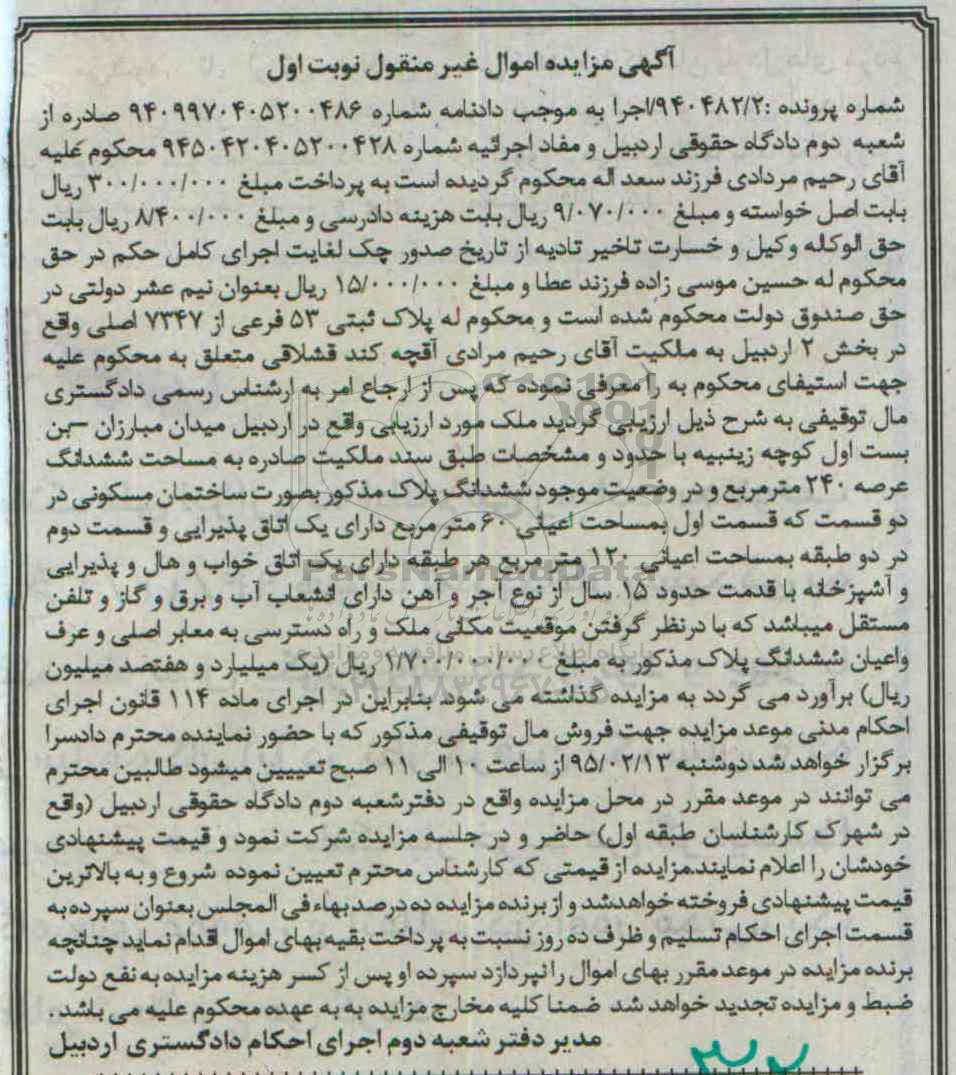 آگهی مزایده اموال غیر منقول نوبت اول
شماره پرونده :۹۴۰۴۸۲/۲/اجرا به موجب دادنامه شماره ۹۴۰۹۹۷۰۴۰۵۲۰۰۴۸۶ صادره از
شعبه دوم دادگاه حقوقی اردبیل و مفاد اجرائیه شماره ۹۴۵۰۴۲۰۴۰۵۲۰۰۴۲۸ محکوم علیه
آقای رحیم مردادی فرزند سعد اله محکوم گردیده است به پرداخت مبلغ ۳۰۰/۰۰۰/۰۰۰ ریال
بابت اصل خواسته و مبلغ ۹/۰۷۰/۰۰۰ ریال بابت هزینه دادرسی و مبلغ ۸/۴۰۰/۰۰۰ ریال بابت
حق الوکاله وکیل و خسارت تاخیر تادیه از تاریخ صدور چک لغایت اجرای کامل حکم در حق
محکوم له حسین موسی زاده فرزند عطا و مبلغ ۱۵/۰۰۰/۰۰۰ ریال بعنوان نیم عشر دولتی در
حق صندوق دولت محکوم شده است و محکوم له پلاک ثبتی ۵۳ فرعی از ۷۳۴۷ اصلی واقع
در بخش ۲ اردبیل به ملکیت آقای رحیم مرادی آقچه کند قشلاقی متعلق به محکوم علیه
جهت استیفای محکوم به را معرفی نموده که پس از ارجاع امر به ارشناس رسمی دادگستری
مال توقیفی به شرح ذیل ارزیابی گردید ملک مورد ارزیابی واقع در اردبیل میدان مبارزان -بن
بست اول کوچه زینبیه با حدود و مشخصات طبق سند مالکیت صادره به مساحت ششدانگ
عرصه ۲۴۰ مترمربع و در وضعیت موجود ششدانگ پلاک مذکور بصورت ساختمان مسکونی در
دو قسمت که قسمت اول بمساحت اعیانی ۶۰ متر مربع دارای یک اتاق پذیرایی و قسمت دوم
در دو طبقه بمساحت اعیانی ۱۲۰ متر مربع هر طبقه دارای یک اتاق خواب و هال و پذیرایی
و آشپزخانه با قدمت حدود ۱۵ سال از نوع آجر و آهن دارای انشعاب آب و برق و گاز و تلفن
مستقل میباشد که با درنظر گرفتن موقعیت مکانی ملک و راه دسترسی به معابر اصلی و عرف
واعیان ششدانگ پلاک مذکور به مبلغ ۱/۷۰۰/۰۰۰/۰۰۰ ریال (یک میلیارد و هفتصد میلیون
ریال) برآورد می گردد به مزایده گذاشته می شود. بنابراین در اجرای ماده ۱۱۴ قانون اجرای
احکام مدنی موعد مزایده جهت فروش مال توقیفی مذکور که با حضور نماینده محترم دادسرا
برگزار خواهد شد دوشنبه ۹۵/۰۲/۱۳ از ساعت ۱۰ الی ۱۱ صبح تعیییین میشود طالبین محترم
می توانند در موعد مقرر در محل مزایده واقع در دفترشعبه دوم دادگاه حقوقی اردبیل (واقع
در شهرک کارشناسان طبقه اول) حاضر و در جلسه مزایده شرکت نمود و قیمت پیشنهادی
خودشان را اعلام نمایند.مزایده از قیمتی که کارشناس محترم تعیین نموده شروع و به بالاترین
قیمت پیشنهادی فروخته خواهدشد و از برنده مزایده ده درصد بهاء فی المجلس بعنوان سپرده به
قسمت اجرای احکام تسلیم و ظرف ده روز نسبت به پرداخت بقیه بهای اموال اقدام نماید چنانچه
برنده مزایده در موعد مقرر بهای اموال را نپردازد سپرده او پس از کسر هزینه مزایده به نفع دولت
ضبط و مزایده تجدید خواهد شد ضمنا کلیه مخارج مزایده به به عهده محکوم علیه می باشد.
مدیر دفتر شعبه دوم اجرای احکام دادگستری اردبیل
ParsNamadData